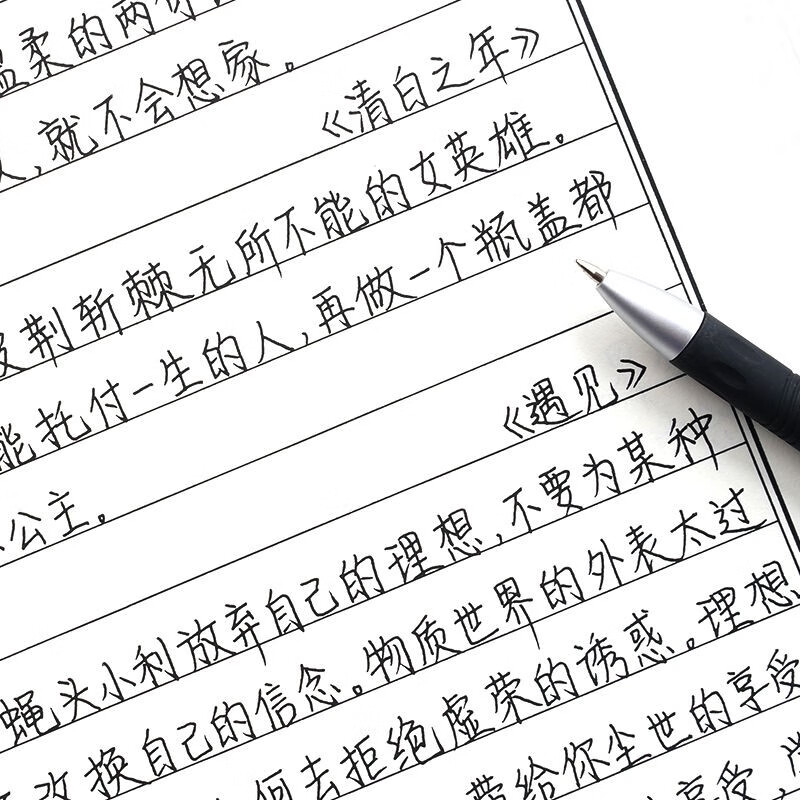 温柔的两
,就不会想家。
《清白之年》
荆斩棘无所不能的女英雄。
能托付一生的人,再做一个瓶盖都
公主。
《遇见》
蝇头小利放弃自己的理想,不要为某种
改换自己的信念。物质世界的外表太过
何去拒绝虚荣的诱惑。理想
带给你尘世的享受
享受,